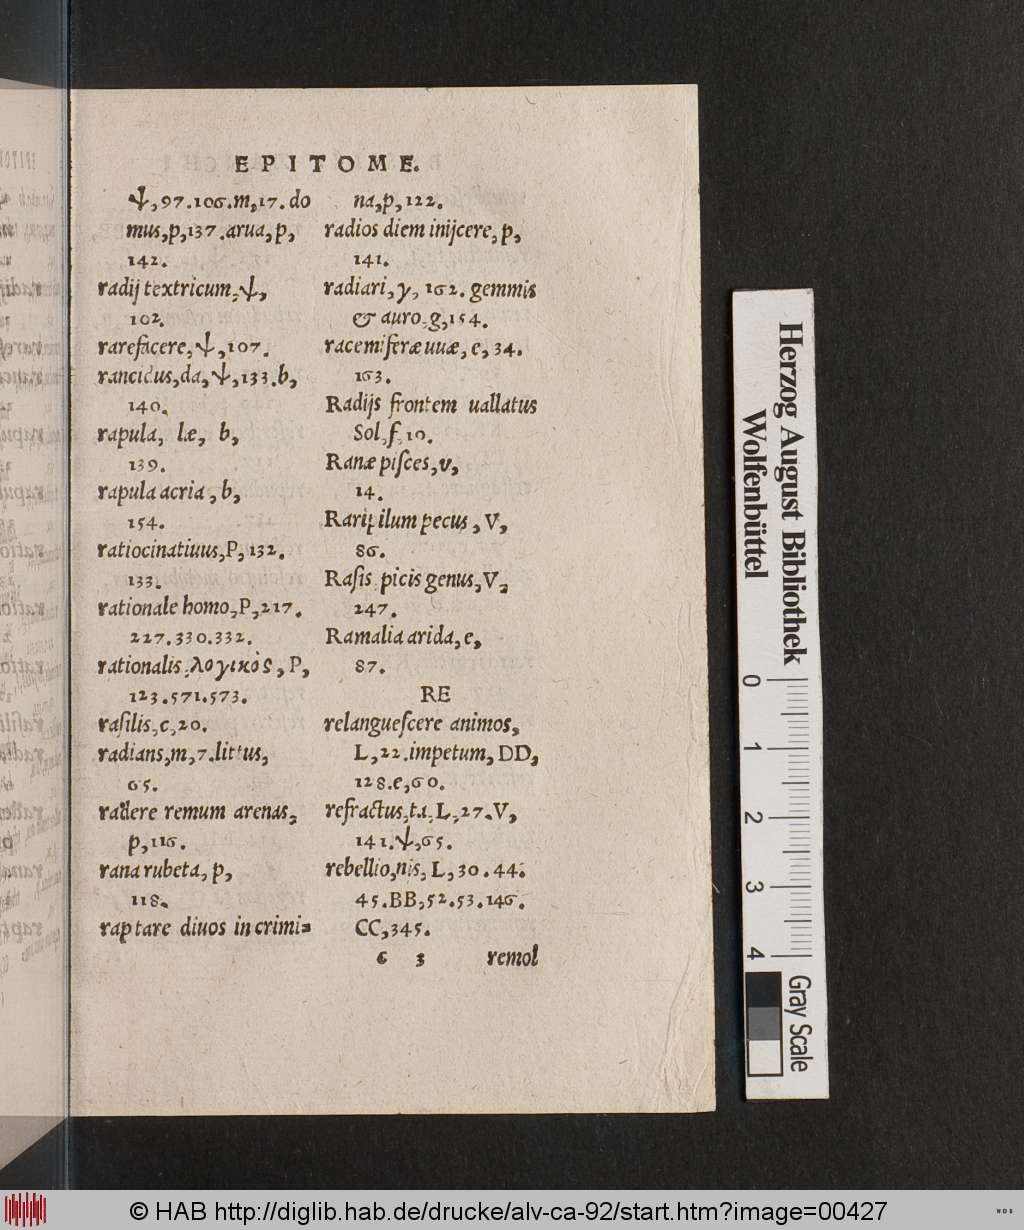 EPITOME.
ψ,97.106.m,17.do
mus,p,137.arua,p,
142.
radij textricum,ψ,
102.
rarefacere,ψ,107.
rancidus,da,ψ,133.b,
140.
rapula, læ, b,
139.
rapula acria, b,
154.
ratiocinatiuus,P,132.
133.
rationale homo,P,217.
227.330.332.
rationalis,λογικὸς,P,
123.571.573.
raſilis,c,20.
radians,m,7.littus,
65.
radere remum arenas,
p,116.
rana rubeta, p,
118.
raptare diuos in crimi=
na,p,122.
radios diem inijcere,p,
141.
radiari,γ,162. gemmis
& auro,g,154.
racemiferæ uuæ,e,34.
163.
Radijs frontem uallatus
Sol,f,10.
Ranæ piſces,v,
14.
Raripilum pecus, V,
86.
Raſis picis genus,V,
247.
Ramalia arida,e,
87.
RE
relangueſcere animos,
L,22.impetum,DD,
128.e,60.
refractus,ta,L,27.V,
141.ψ,65.
rebellio,nis,L,30.44.
45.BB,52.53.146.
CC,345.
6 3 remol
Herzog August Bibliothek
Wolfenbüttel
0 1 2 3 4
Gray Scale
© HAB http://diglib.hab.de/drucke/alv-ca-92/start.htm?image=00427